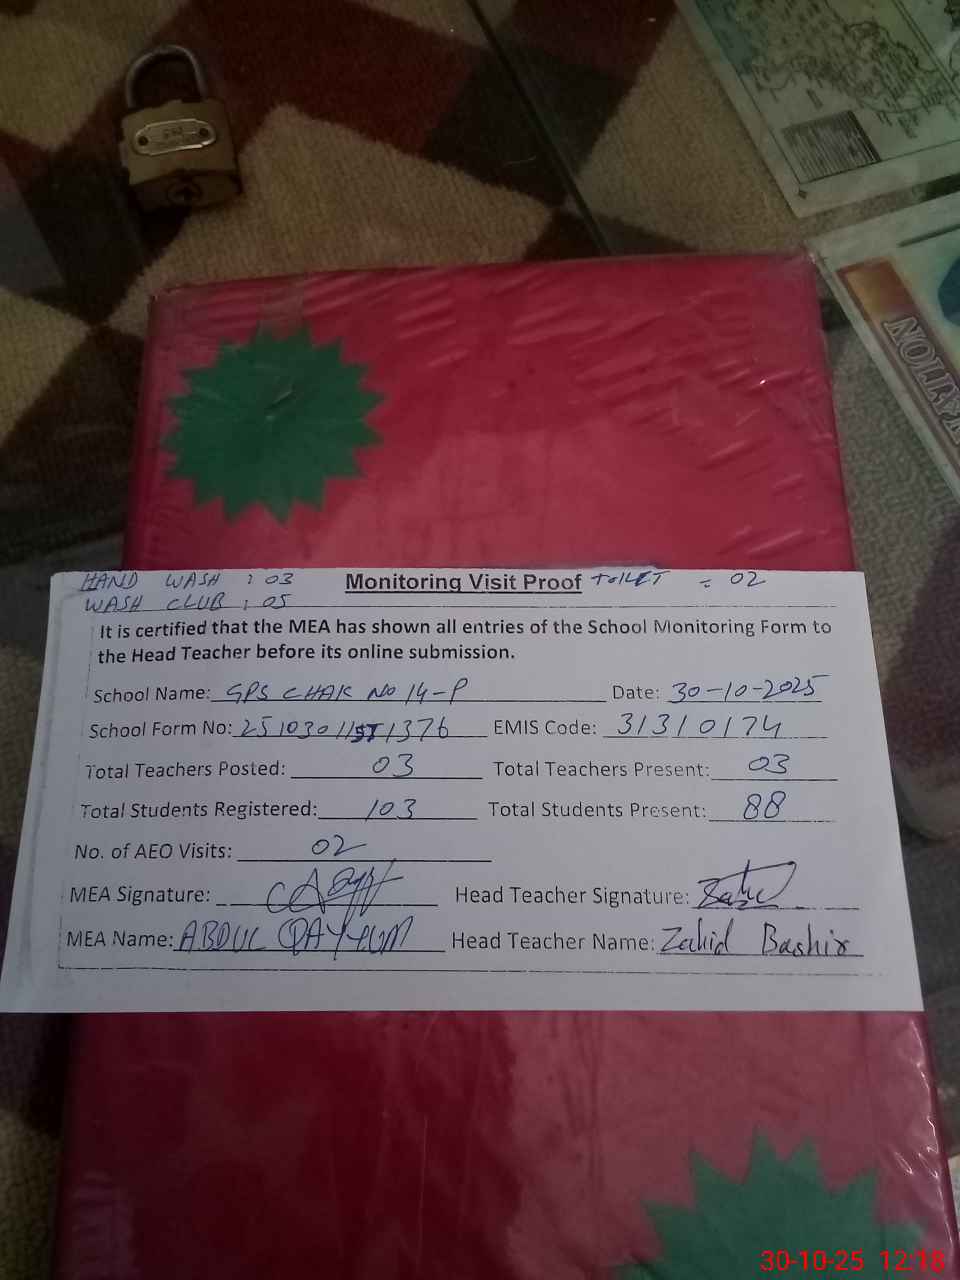 HAND WASH : 03 Monitoring Visit Proof TOILET = 02
WASH CLUB : 05
It is certified that the MEA has shown all entries of the School Monitoring Form to
the Head Teacher before its online submission.
School Name: GPS CHAK No 14-P Date: 30-10-2025
School Form No: EMIS Code: 31310174
Total Teachers Posted: 03 Total Teachers Present: 03
Total Students Registered: 103 Total Students Present: 88
No. of AEO Visits: 02
MEA Signature: Head Teacher Signature:
MEA Name: ABDUL QAYYUM Head Teacher Name: Zahid Bashir
30-10-25 12:18